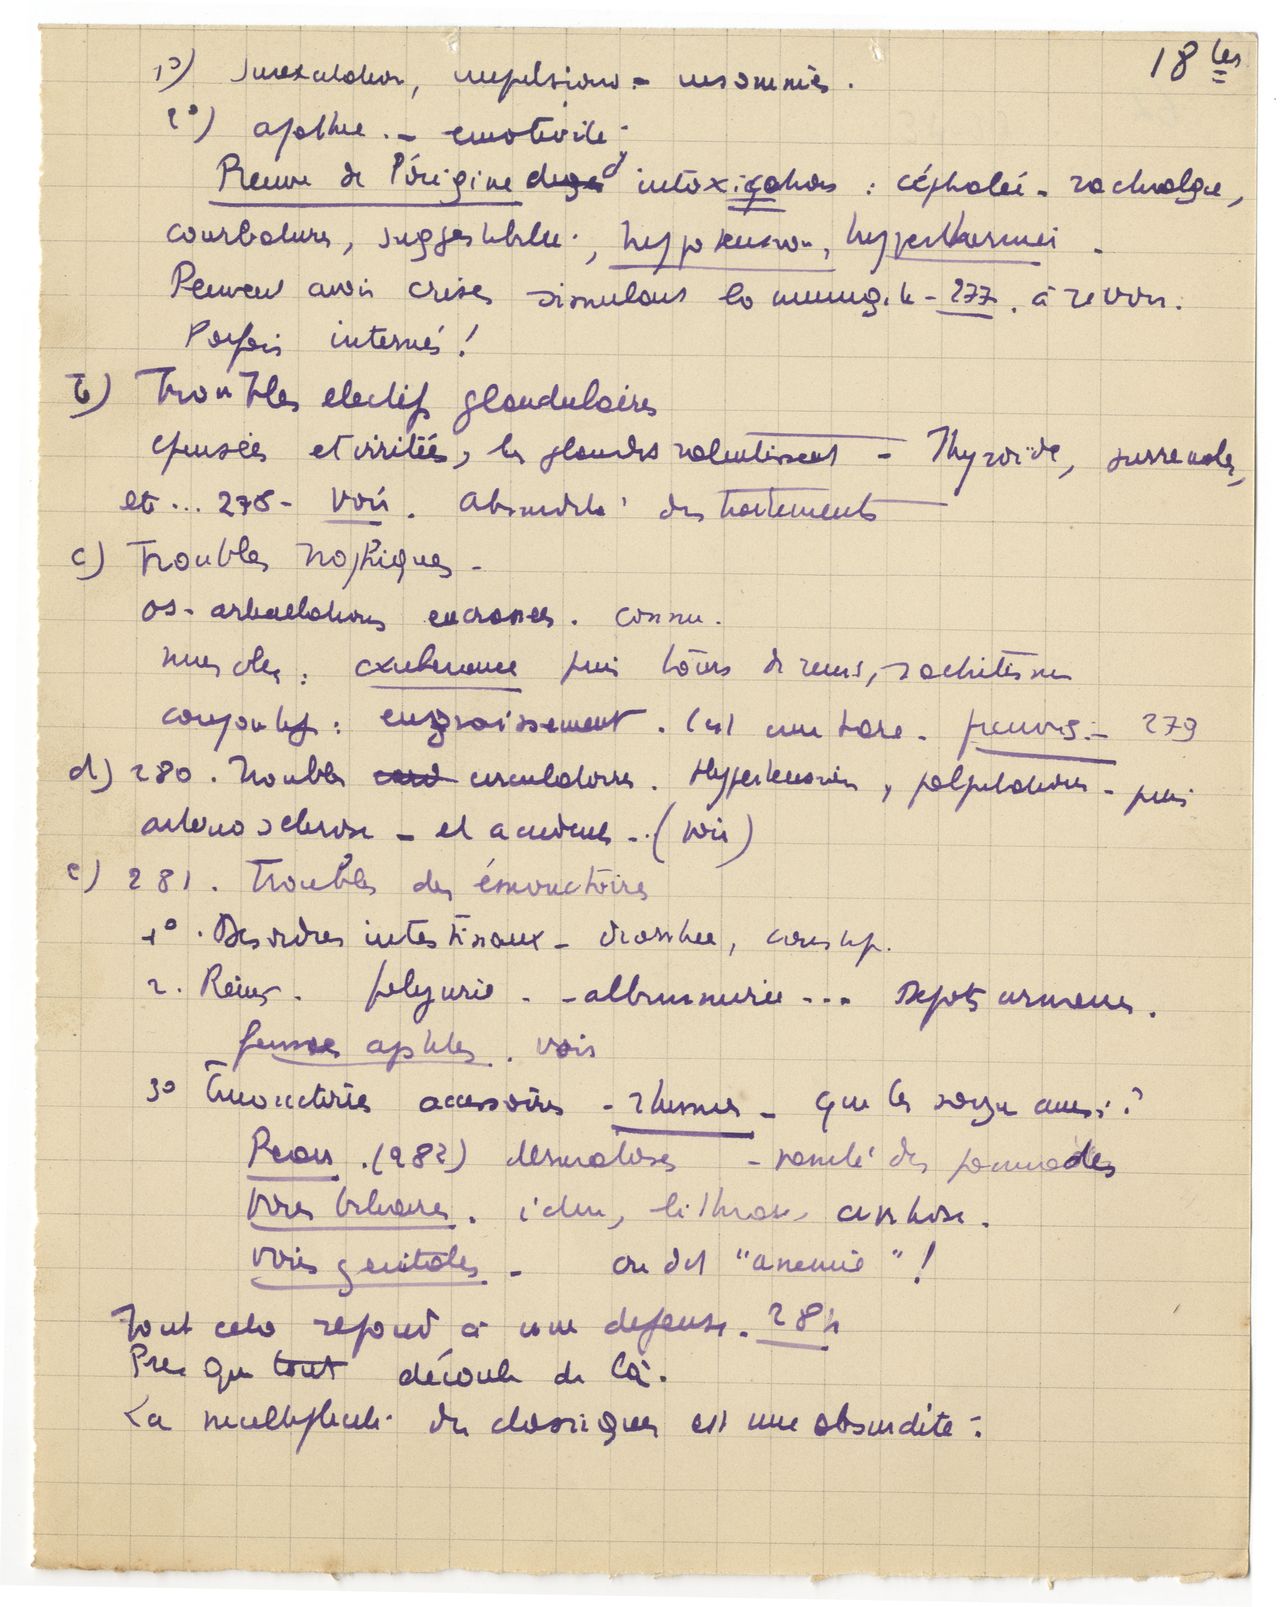 18 ter
1°) Surexcitation, impulsions - insomnies.
2°) apathie. - emotivité.
Preuve de l'origine d'intoxication : céphalée - rachialgie,
courbatures, suggestibilité, hypotension, hyperthermie.
Peuvent avoir crises simulant la méningite - 277. à revoir.
Parfois internés !
b) Troubles electifs glandulaires
epuisées et irritées, les glandes ralentissent - Thyroïde, surrenales,
etc... 278 - voir. Absurdité des traitements
c) Troubles trophiques -
os - articulations encrassées. connu.
muscles : exubérance puis tours de reins, rachitisme
conjonctif : engraissement. C'est une tare. preuves. - 279
d) 280. Troubles circulatoires. Hypertension, palpitations - puis
arteriosclérose - et accidents - .. (voir)
e) 281. Troubles des émonctoires
1°. Desordres intestinaux - diarrhée, constip.
2. Reins. polyurie. - albuminurie --- Depots urinaires.
voir
3° Émonctoires accessoires - rhumes - que les soigne aussi ?
Peau. (282) dermatoses - vanité des pommades
Voies biliaires. idem, lithiase
Voies genitales - on dit "anemie" !
Tout cela repond à une defense. 284
Presque tout découle de là.
La multiplicité des classiques est une absurdité :